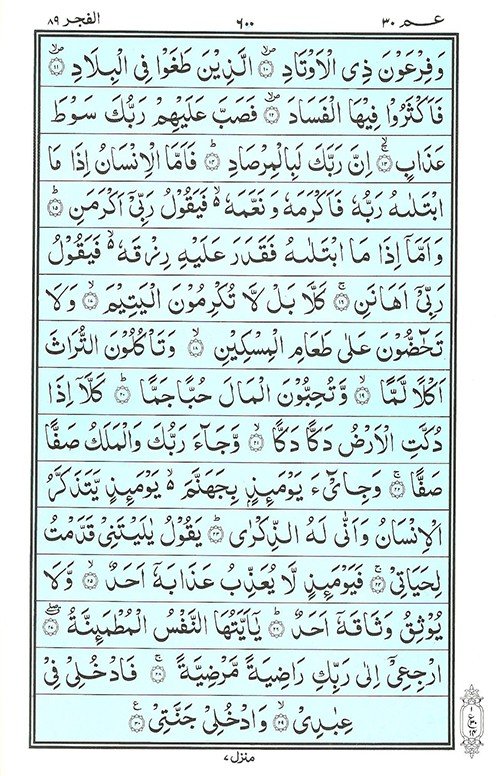 عـم ٣٠ ٦٠٠ الفجر ٨٩
وَفِرْعَوْنَ ذِى الْاَوْتَادِ ۝١٠ الَّذِيْنَ طَغَوْا فِى الْبِلَادِ ۝١١
فَاَكْثَرُوْا فِيْهَا الْفَسَادَ ۝١٢ فَصَبَّ عَلَيْهِمْ رَبُّكَ سَوْطَ
عَذَابٍ ۝١٣ اِنَّ رَبَّكَ لَبِالْمِرْصَادِ ۝١٤ فَاَمَّا الْاِنْسَانُ اِذَا مَا
ابْتَلٰىهُ رَبُّهٗ فَاَكْرَمَهٗ وَنَعَّمَهٗ ۙ فَيَقُوْلُ رَبِّىْٓ اَكْرَمَنِ ۝١٥
وَاَمَّآ اِذَا مَا ابْتَلٰىهُ فَقَدَرَ عَلَيْهِ رِزْقَهٗ ۙ فَيَقُوْلُ
رَبِّىْٓ اَهَانَنِ ۝١٦ كَلَّا بَلْ لَّا تُكْرِمُوْنَ الْيَتِيْمَ ۝١٧ وَلَا
تَحٰٓضُّوْنَ عَلٰى طَعَامِ الْمِسْكِيْنِ ۝١٨ وَتَاْكُلُوْنَ التُّرَاثَ
اَكْلًا لَّمًّا ۝١٩ وَّتُحِبُّوْنَ الْمَالَ حُبًّا جَمًّا ۝٢٠ كَلَّآ اِذَا
دُكَّتِ الْاَرْضُ دَكًّا دَكًّا ۝٢١ وَّجَآءَ رَبُّكَ وَالْمَلَكُ صَفًّا
صَفًّا ۝٢٢ وَجِاىْٓءَ يَوْمَئِذٍۢ بِجَهَنَّمَ ۙ يَوْمَئِذٍ يَّتَذَكَّرُ
الْاِنْسَانُ وَاَنّٰى لَهُ الذِّكْرٰى ۝٢٣ يَقُوْلُ يٰلَيْتَنِىْ قَدَّمْتُ
لِحَيَاتِىْ ۝٢٤ فَيَوْمَئِذٍ لَّا يُعَذِّبُ عَذَابَهٗٓ اَحَدٌ ۝٢٥ وَّلَا
يُوْثِقُ وَثَاقَهٗٓ اَحَدٌ ۝٢٦ يٰٓاَيَّتُهَا النَّفْسُ الْمُطْمَئِنَّةُ ۝٢٧
ارْجِعِىْٓ اِلٰى رَبِّكِ رَاضِيَةً مَّرْضِيَّةً ۝٢٨ فَادْخُلِىْ فِىْ
عِبٰدِىْ ۝٢٩ وَادْخُلِىْ جَنَّتِىْ ۝٣٠
منزل ٧